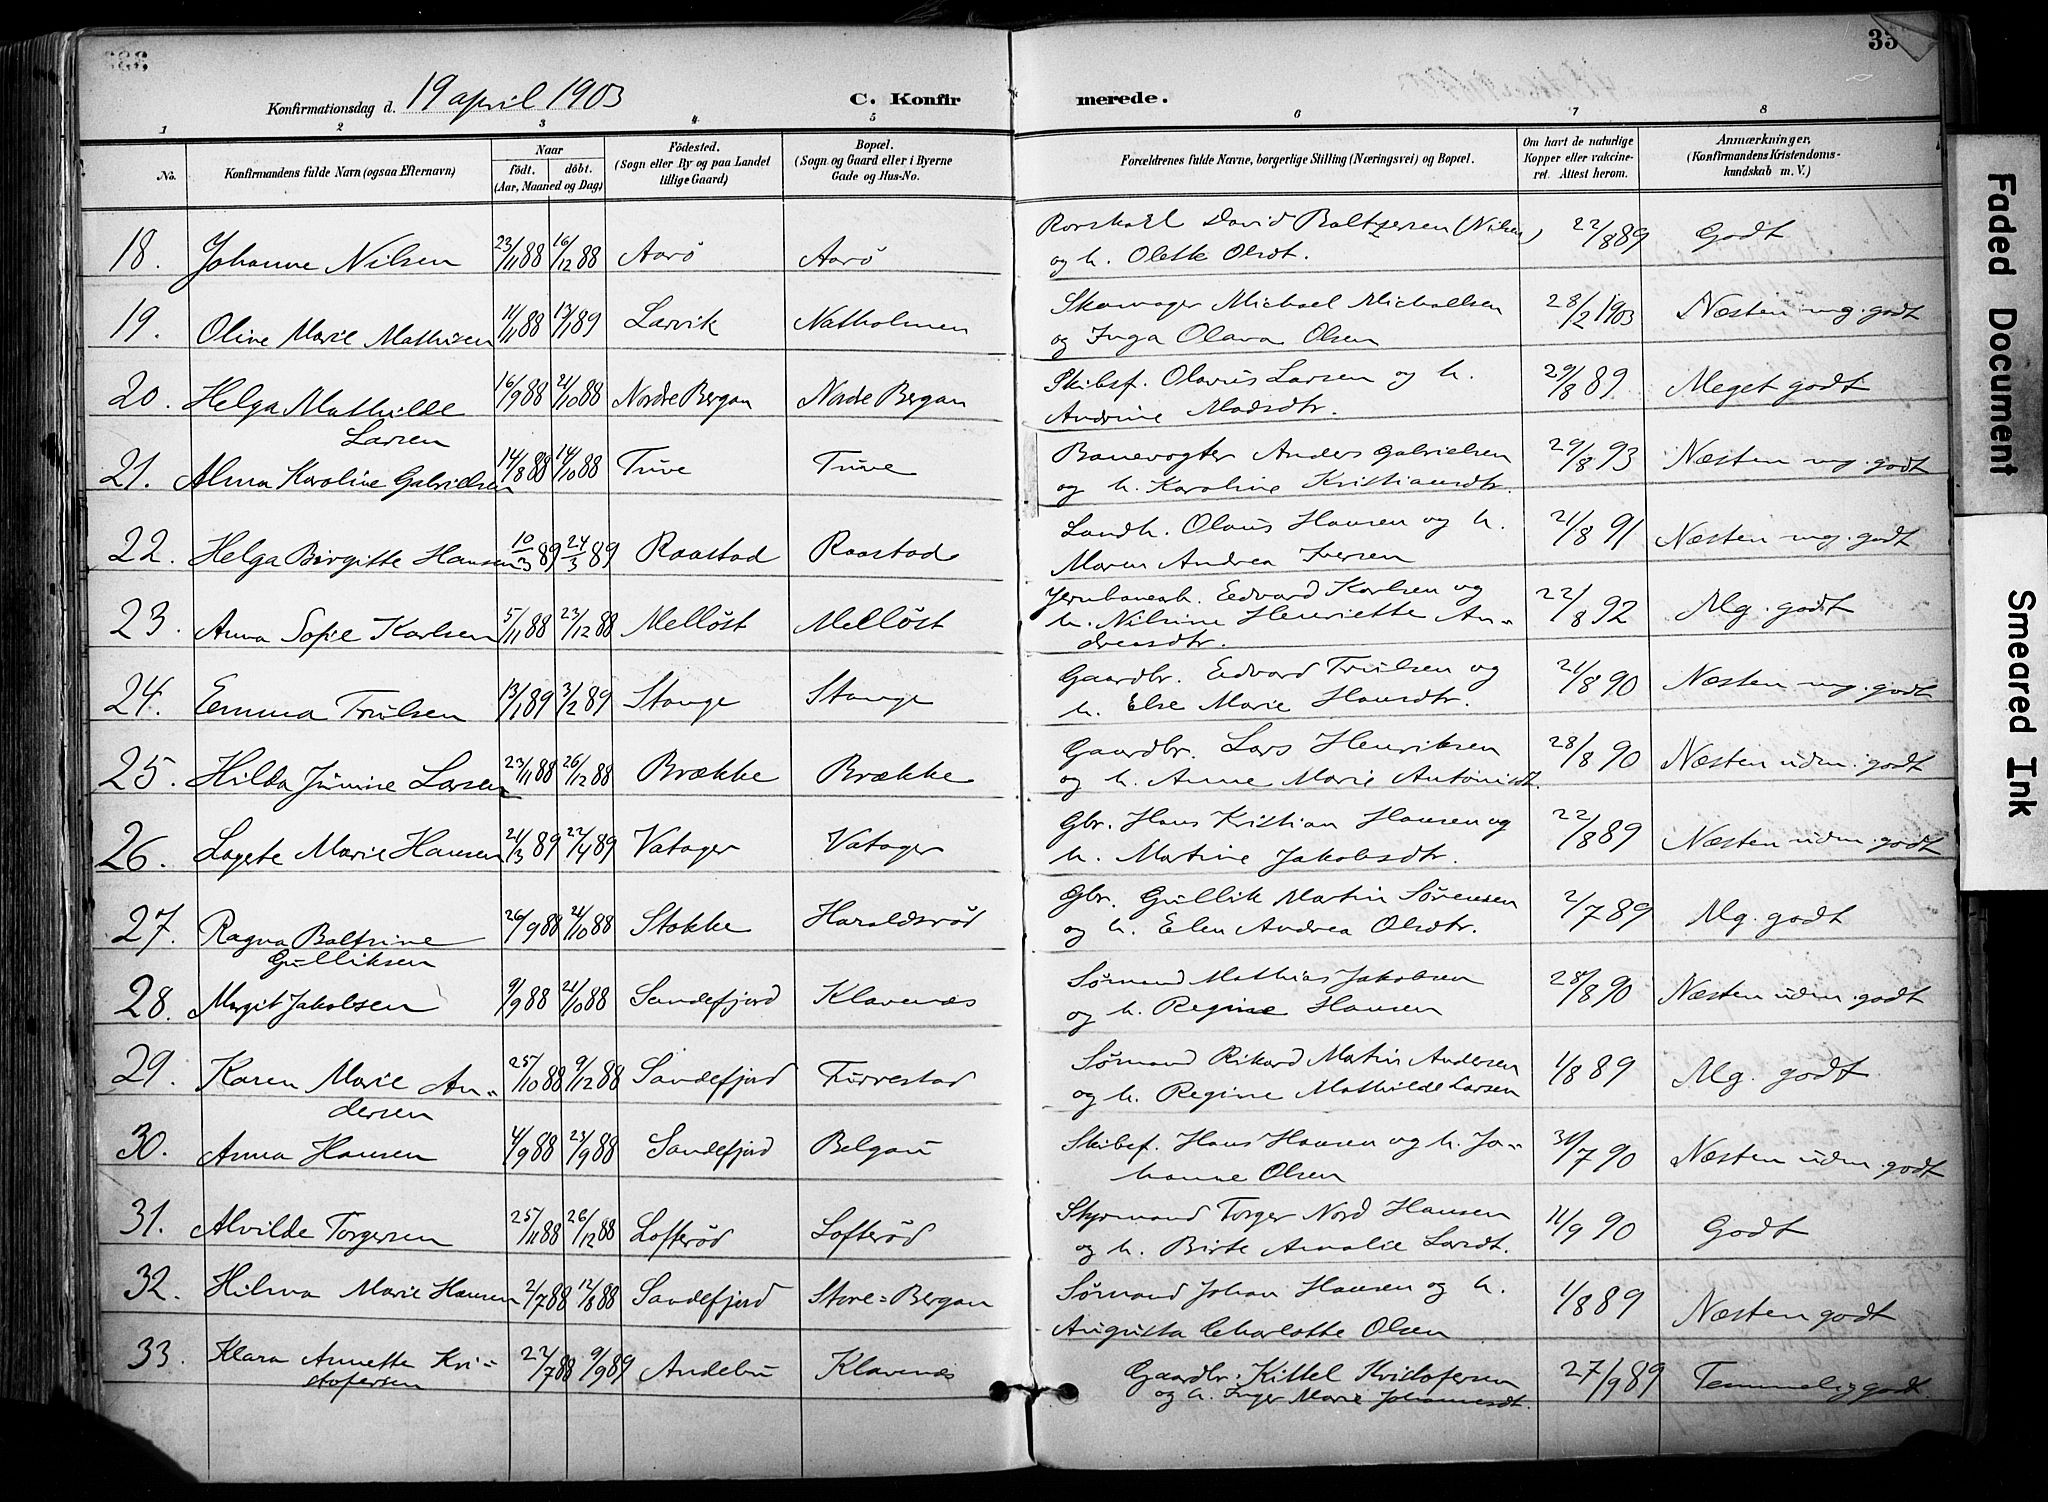 35
Konfirmationsdag d. 19 april 1903 C. Konfirmerede.
1 2 3 4 5 6 7 8
No. Konfirmandens fulde Navn (ogsaa Efternavn) Naar født. døbt. (Aar, Maaned og Dag) Fødested. (Sogn eller By og paa Landet tillige Gaard) Bopæl. (Sogn og Gaard eller i Byerne Gade og Hus-No. Forældrenes fulde Navne, borgerlige Stilling (Næringsvei) og Bopæl. Om havt de naturlige Kopper eller vakcineret. Attest herom. Anmærkninger, (Konfirmandens Kristendomskundskab m. V.)
18. Johanne Nilsen 23/11 88 16/12 88 Aarø Aarø David Baltzersen (Nilsen) 22/8 89 Godt
og h. Olette Olsdt.
19. Olive Marie Mathisen 11/11 88 13/1 89 Larvik Natholmen Skomager Michael Michaelsen 28/2 1903 Næsten mg. godt
og Inga Olava Olsen
20. Helga Mathilde 16/9 88 21/10 88 Nordre Bergan Nordre Bergan Skibsf. Olavus Larsen og h. 29/8 89. Meget godt
Larsen Andrine Madsdtr.
21. Alma Karoline Gabrielsen 14/8 88 14/10 88 Tuve Tuve Banevogter Anders Gabrielsen 29/8 93 Næsten mg. godt
og h. Karoline Kristiansdtr.
22. Helga Birgitte Hansen 10/3 89 24/3 89 Raastad Raastad Landh. Olaus Hansen og h. 21/8 91 Næsten mg. godt
Maren Andrea Iversen
23. Anna Sofie Karlsen 5/11 88 23/12 88 Melløst Melløst Jernbanearb. Edvard Karlsen og 22/8 92 Mg. godt
h. Nilsine Henriette An-
dreasdtr.
24. Emma Trulsen 13/1 89 3/2 89 Stange Stange Gaardbr. Edvard Trulsen og 21/8 90 Næsten mg. godt
h. Else Marie Hansdtr.
25. Hilda Jumine Larsen 23/11 88 26/12 88 Brække Brække Gaardbr. Lars Henriksen 28/8 90 Næsten udm. godt
og h. Anne Marie Antonisdt.
26. Lagete Marie Hansen 21/3 89 22/4 89 Vatager Vatager Gbr. Hans Kristian Hansen og 22/8 89 Næsten udm. godt
h. Martine Jakobsdtr.
27. Ragna Baltrine 26/9 88 21/10 88 Stokke Haraldsrød Gbr. Gullik Martin Sørensen 2/7 89 Mg. godt
Gulliksen og h. Elen Andrea Olsdtr.
28. Margit Jakobsen 9/9 88 21/10 88 Sandefjord Klavenæs Sømand Mathias Jakobsen 28/8 90 Næsten udm. godt
og h. Regine Hansen
29. Karen Marie An- 25/10 88 9/12 88 Sandefjord Furrestad Sømand Rikard Martin Andersen 1/8 89 Mg. godt
dersen og h. Regine Mathilde Larsen
30. Anna Hansen 4/9 88 23/9 88 Sandefjord Belgau Skibsf. Hans Hansen og h. Jo- 31/7 90 Næsten udm. godt
hanne Olsen
31. Alvilde Torgersen 25/11 88 26/12 88 Lofterød Lofterød Styrmand Torger Nord Hansen 11/9 90 Godt
og h. Birte Amalie Larsdt.
32. Hilma Marie Hansen 2/7 88 12/8 88 Sandefjord Store=Bergan Sømand Johan Hansen og h. 1/8 89 Næsten godt
Augusta Charlotte Olsen
33. Klara Annette Kri- 22/7 88 9/9 89 Andebu Klavenæs Gaardbr. Kittel Kristofersen 27/9 89 Temmelig godt.
stofersen og h. Inger Marie Johannesdt.
Faded Document
Smeared Ink